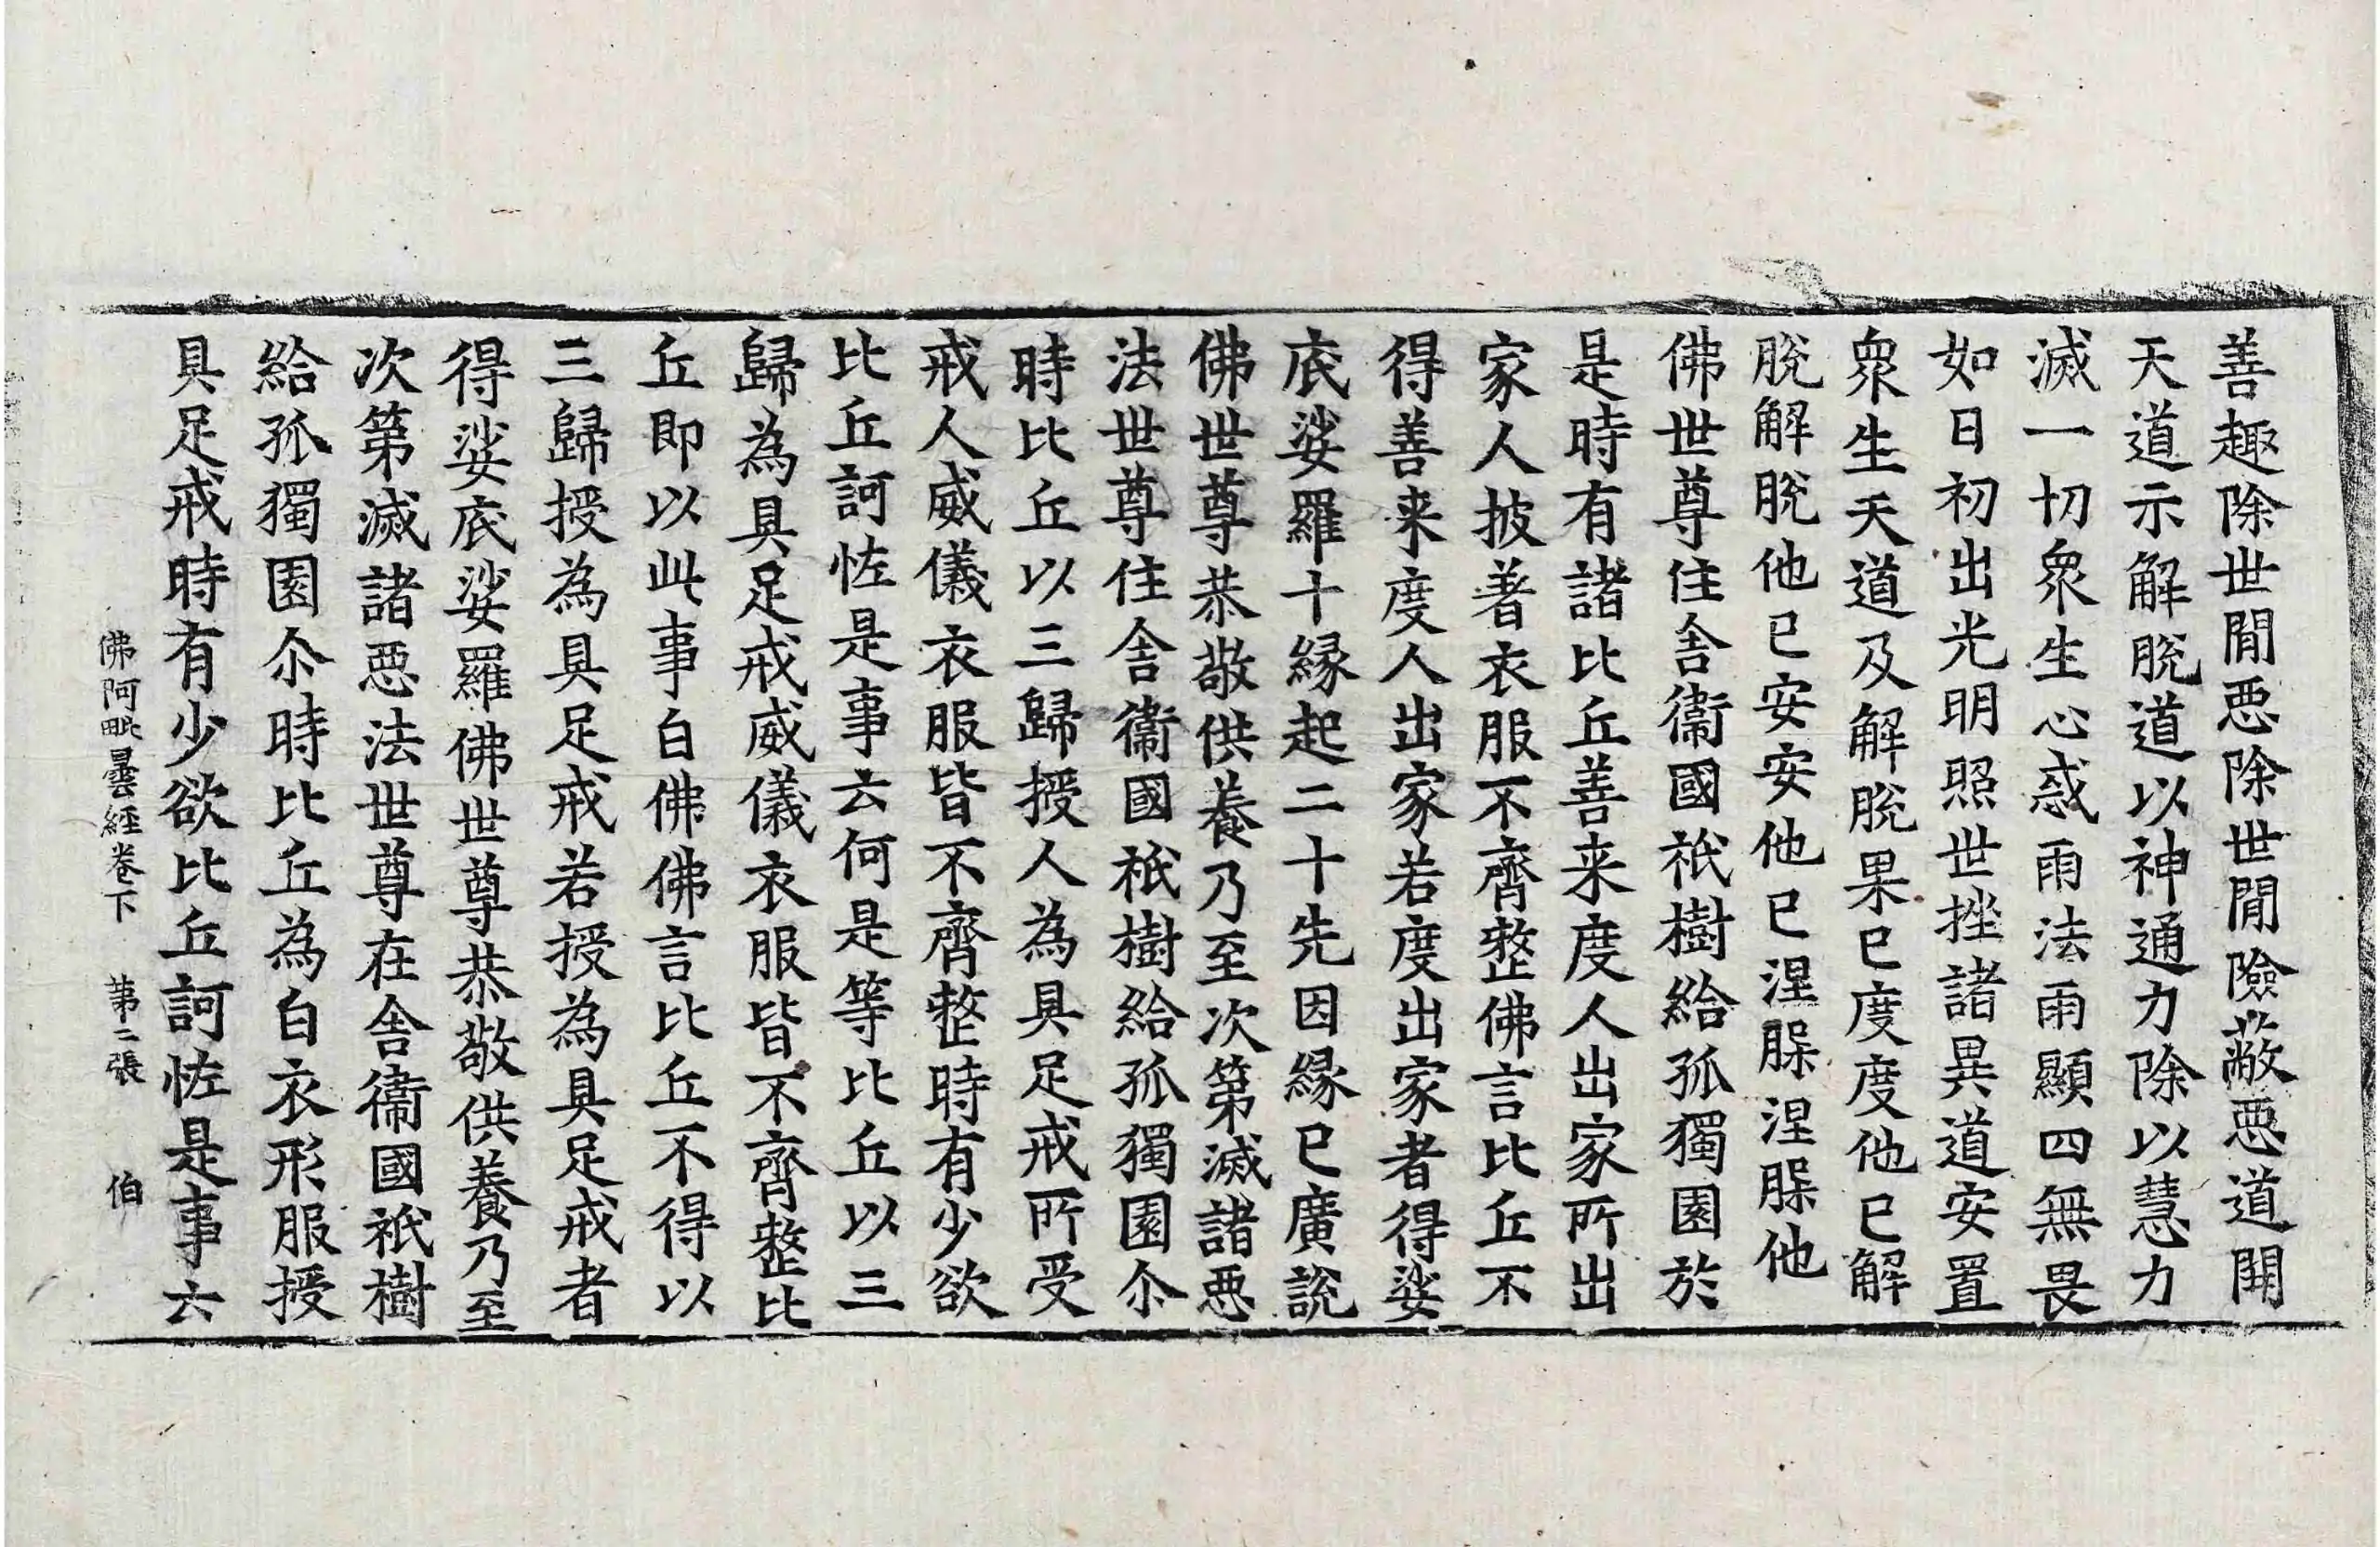 善趣除世閒悪除世閒險蔽悪道開
天道示解脫道以神通力除以慧力
滅一切衆生心惑雨法雨顯四無畏
如日初出光明照世挫諸異道安置
衆生天道及解脫果已度度他已解
脫解脫他已安安他已涅槃涅槃他
佛世尊住舍衞國祇樹給孤獨園於
是時有諸比丘善来度人出家所出
家人披著衣服不齊整佛言比丘不
得善来度人出家若度出家者得娑
底娑羅十緣起二十先因緣已廣說
佛世尊恭敬供養乃至次第滅諸悪
法世尊住舍衞國祇樹給孤獨園尒
時比丘以三歸授人為具足戒所受
戒人威儀衣服皆不齊整時有少欲
比丘訶恠是事云何是等比丘以三
歸為具足戒威儀衣服皆不齊整比
丘即以此事白佛佛言比丘不得以
三歸授為具足戒若授為具足戒者
得娑底娑羅佛世尊恭敬供養乃至
次第滅諸悪法世尊在舍衞國祇樹
給孤獨園尒時比丘為白衣形服授
具足戒時有少欲比丘訶恠是事六
佛阿毗曇經卷下 第二張 伯